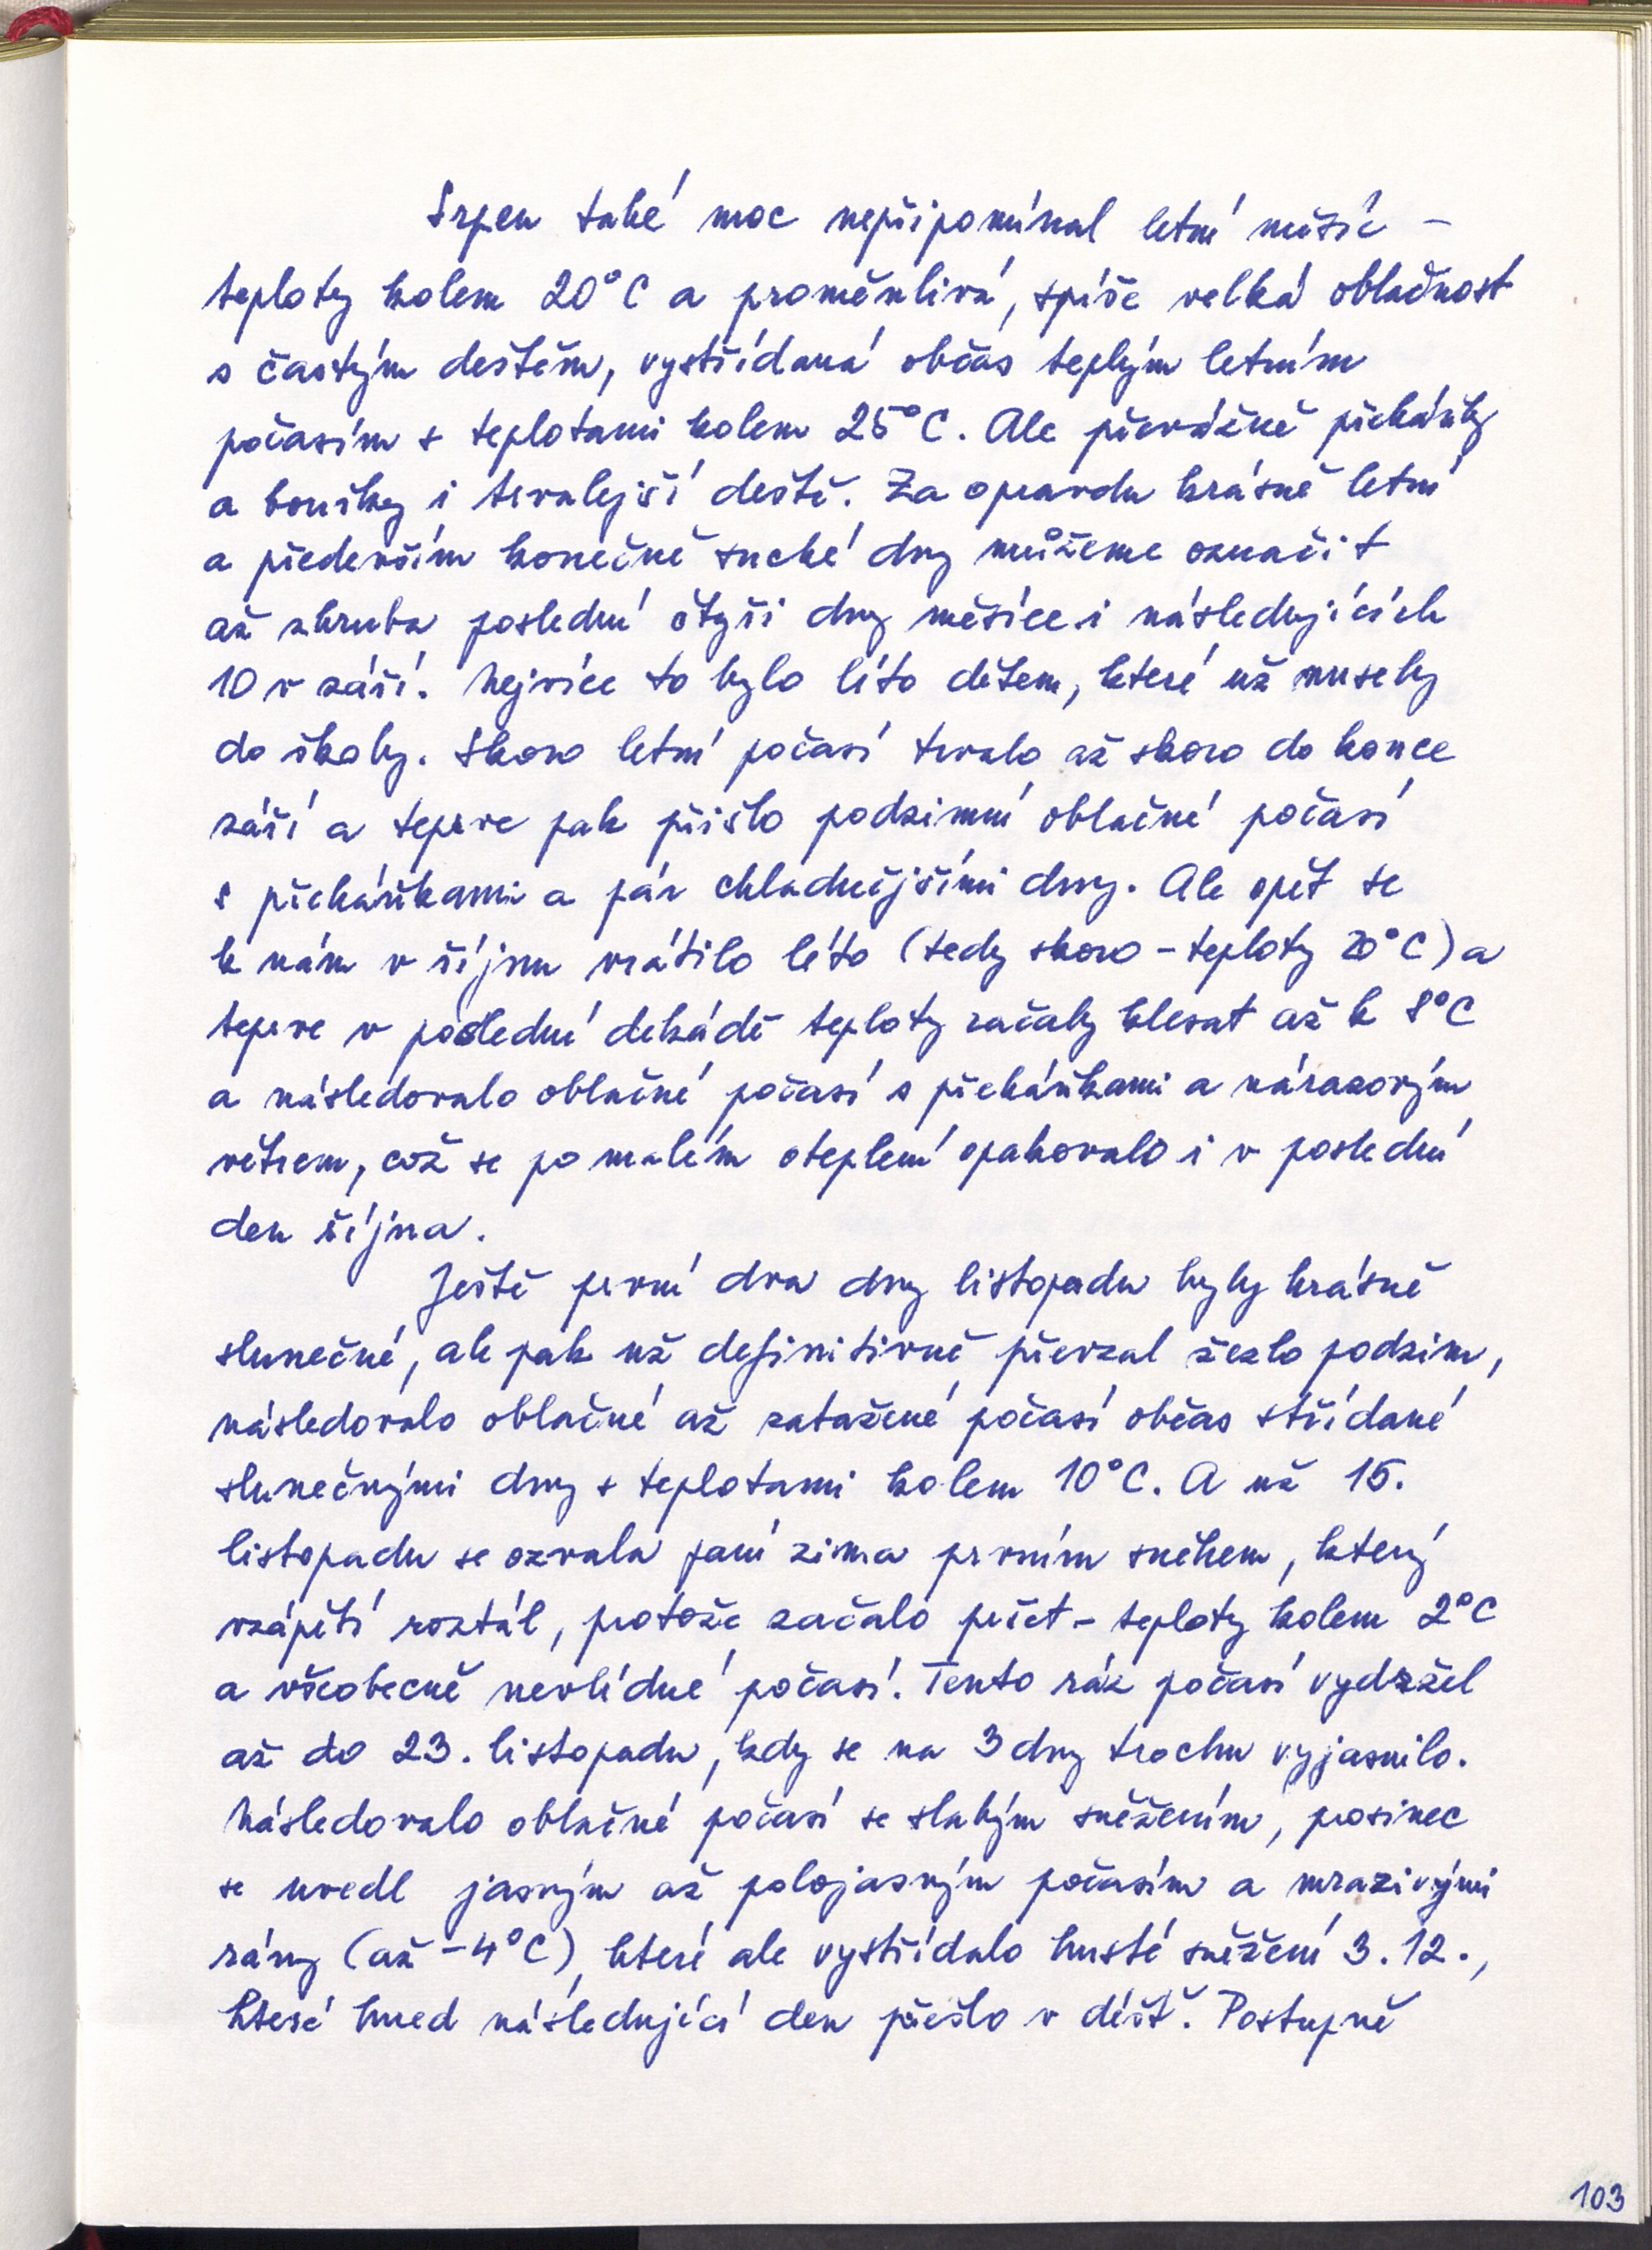 Srpen také moc nepřipomínal letní měsíc –
teploty kolem 20°C a proměnlivá, spíše velká oblačnost
s častým deštěm, vystřídaná občas teplým letním
počasím s teplotami kolem 25°C. Ale převážně přeháňky
a bouřky i trvalejší deště. Za opravdu krásné letní
a především konečně suché dny můžeme označit
až zhruba poslední čtyři dny měsíce i následujících
10 v září. Nejvíce to bylo líto dětem, které už musely
do školy. Skoro letní počasí trvalo až skoro do konce
září a teprve pak přišlo podzimní oblačné počasí
s přeháňkami a pár chladnějšími dny. Ale opět se
k nám v říjnu vrátilo léto (tedy skoro – teploty 20°C) a
teprve v poslední dekádě teploty začaly klesat až k 8°C
a následovalo oblačné počasí s přeháňkami a nárazovým
větrem, což se po malém oteplení opakovalo i v poslední
den října.
Ještě první dva dny listopadu byly krásně
slunečné, ale pak už definitivně převzal žezlo podzim,
následovalo oblačné až zatažené počasí občas střídané
slunečnými dny s teplotami kolem 10°C. A už 15.
listopadu se ozvala paní zima prvním sněhem, který
vzápětí roztál, protože začalo pršet – teploty kolem 2°C
a všeobecně nevlídné počasí. Tento ráz počasí vydržel
až do 23. listopadu, kdy se na 3 dny trochu vyjasnilo.
Následovalo oblačné počasí se slabým sněžením, prosinec
se uvedl jasným až polojasným počasím a mrazivými
rány (až –4°C), které ale vystřídalo husté sněžení 3.12.,
které hned následující den přešlo v déšť. Postupně
103